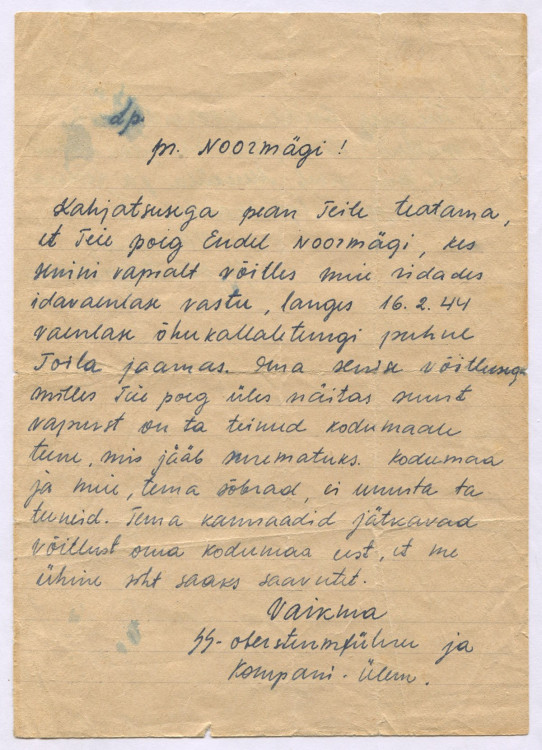 dp.
pr. Noormägi!
Kahjatsusega pean Teile teatama,
et Teie poeg Endel Noormägi, kes
senini vapralt võitles meie ridades
idavaenlase vastu, langes 16.2.44
vaenlase õhukallaletungi puhul
Toila jaamas. Oma senise võitlusega
milles Teie poeg üles näitas suurt
vaprust on ta teinud kodumaale
teene, mis jääb surematuks. Kodumaa
ja meie, tema sõbrad, ei unusta ta
teeneid. Tema kamraadid jätkavad
võitlust oma kodumaa eest, et me
ühine siht saaks saavutet.
Vaikma
SS-obersturmführer ja
Kompanii-ülem.